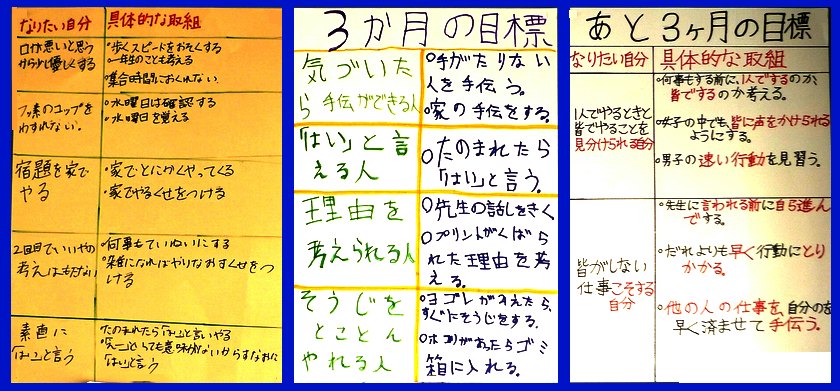 なりたい自分
具体的な取組
口が悪いと思う
から少し優しくする
・歩くスピードをおそくする
・一年生のことも考える
・集合時間におくれない
フッ素のコップを
わすれない。
・水曜日は確認する
・水曜日を覚える
宿題を家で
やる
・家でとにかくやってくる
・家でやるくせをつける
2回目でいいやの
考えはもたない
・何事もていねいにする
・雑になればやりなおすくせをつ
ける
素直に
「はい」と言う
たのまれたら「はい」と言いやる
「はい」と言う
3か月の目標
気づいた
ら手伝ができる人
○手がたりない
人を手伝う。
○家の手伝をする。
「はい」と言
える人
○たのまれたら
「はい」と言う。
理由を
考えられる人
○先生の話しをきく
○プリントがくばら
れた理由を考
える。
そうじを
とことん
やれる人
○ヨゴレがみえたら、
すぐにそうじをする。
○ホコリがあったらゴミ
箱に入れる。
あと3ヶ月の目標
なりたい自分
具体的な取組
1人でやるときと
皆でやることを
見分けられる自分
・何事もする前に、1人でするのか、
皆でするのか考える。
・女子の中でも、皆に声をかけられる
ようにする。
・男子の速い行動を見習う。
皆がしない
仕事こそする
自分
・先生に言われる前に自ら進ん
でする。
・だれよりも早く行動にとり
かかる。
・他の人の仕事を、自分のを
早く済ませて手伝う。